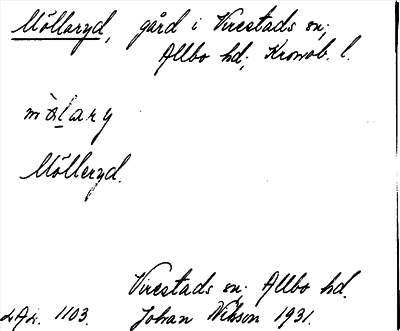 Möllaryd, gård i Virestads sn;
Allbo hd; Kronob. l.
Mölleryd.
Virestads sn; Allbo hd.
1103. Johan Nilsson 1931.